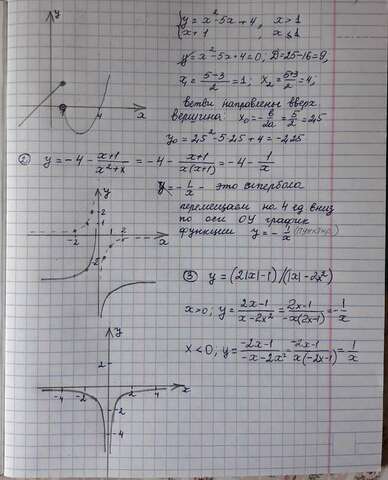 y = x² - 5x + 4, x > 1
x + 1, x ≤ 1
y = x² - 5x + 4 = 0, D = 25 - 16 = 9,
x₁ = (5-3)/2 = 1; x₂ = (5+3)/2 = 4;
ветви направлены вверх
вершина: x₀ = -b/2a = 5/2 = 2,5
y₀ = 2,5² - 5·2,5 + 4 = -2,25
y
4
x
② y = -4 - (x+1)/(x²+x) = -4 - (x+1)/(x(x+1)) = -4 - 1/x
y = -1/x - это гипербола
перемещаем на 4 ед вниз
по оси ОУ график
функции y = -1/x (пунктир)
y
2
-2
2
x
-2
③ y = (2|x|-1)/(|x|-2x²)
x > 0; y = (2x-1)/(x-2x²) = (2x-1)/(-x(2x-1)) = -1/x
x < 0, y = (-2x-1)/(-x-2x²) = (-2x-1)/(x(-2x-1)) = 1/x
y
2
-4
-2
2
4
x
-2
-4